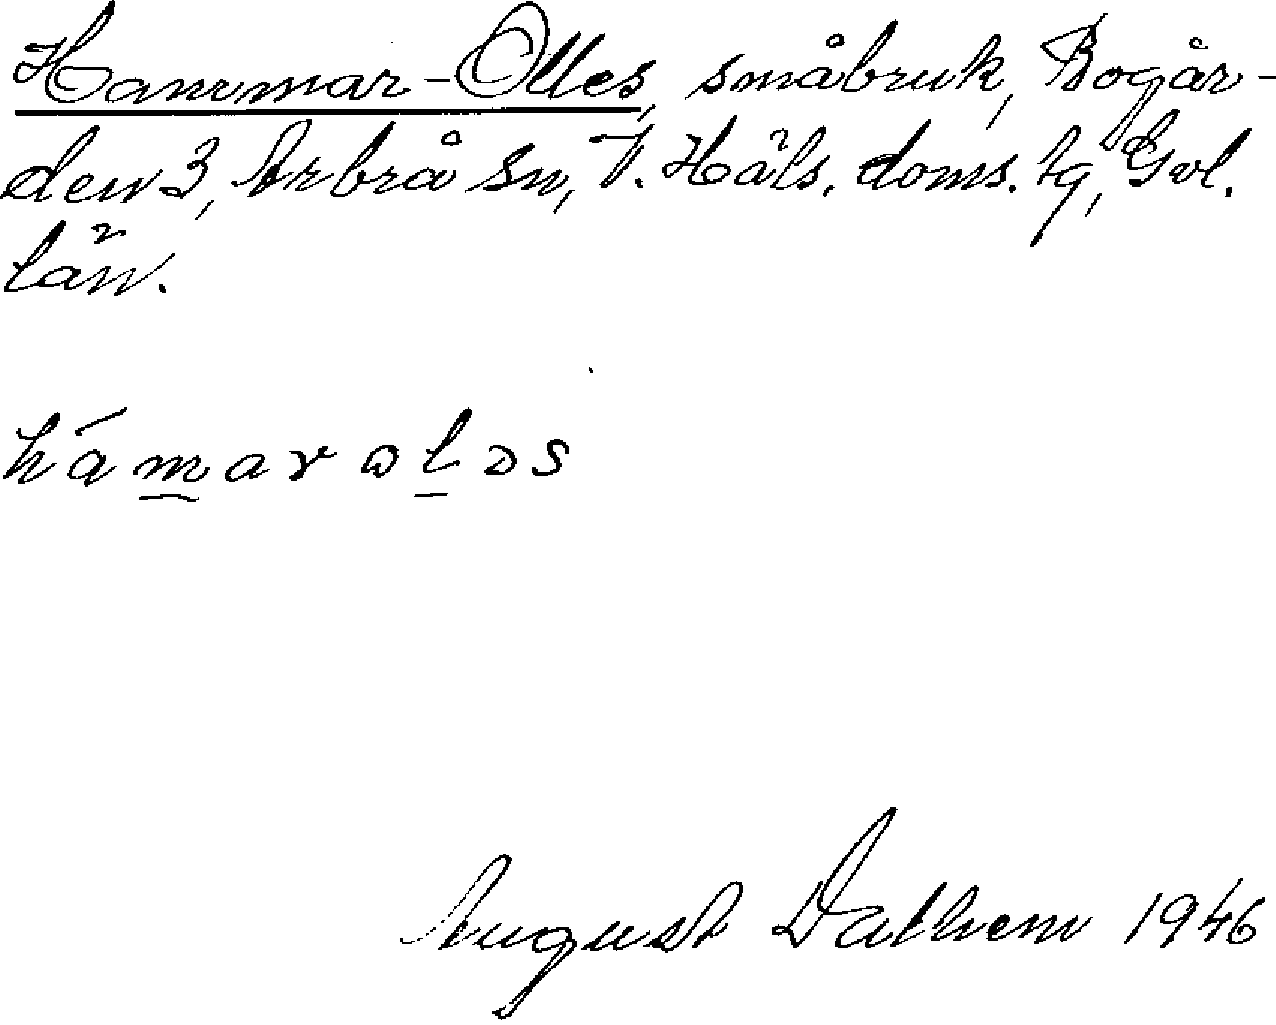 Hammar-Olles, småbruk, Bogår-
den 3, Arbrå sn, V. Häls. doms. tg, Gvl.
län.
hámarωlɔs
August Dathem 1946